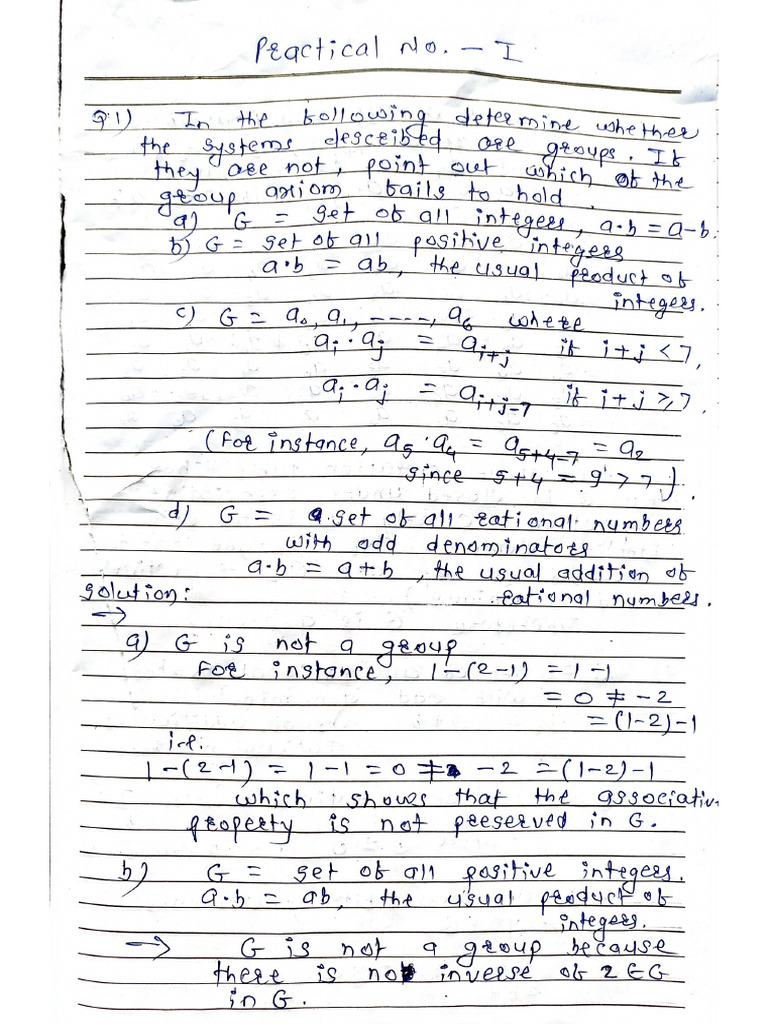 Practical No. - I
Q.1) In the following determine whether
the systems described are groups. If
they are not, point out which of the
group axiom fails to hold.
a) G = set of all integers, a·b = a-b.
b) G = set of all positive integers
a·b = ab, the usual product of
integers.
c) G = a₀, a₁, ----, a₆ where
aᵢ · aⱼ = aᵢ₊ⱼ if i+j < 7,
aᵢ · aⱼ = aᵢ₊ⱼ₋₇ if i+j ≥ 7.
(For instance, a₅ · a₄ = a₅₊₄₋₇ = a₂
since 5+4 = 9 > 7).
d) G = a set of all rational numbers
with odd denominators
a·b = a+b, the usual addition of
solution: rational numbers.
→
a) G is not a group
For instance, 1-(2-1) = 1-1
= 0 ≠ -2
= (1-2)-1
i.e.
1-(2-1) = 1-1 = 0 ≠ -2 = (1-2)-1
which shows that the associativ
property is not preserved in G.
b) G = set of all positive integers.
a·b = ab, the usual product of
integers.
→ G is not a group because
there is no inverse of 2 ∈ G
in G.